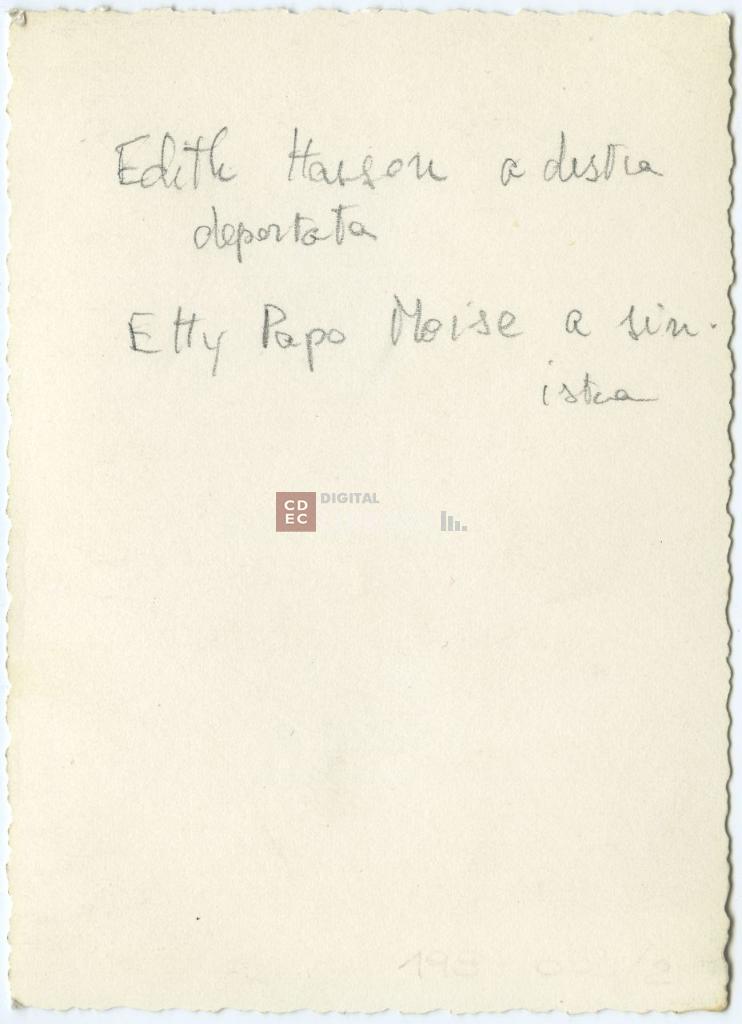 Edith Hasson a destra
deportata
Etty Papo Moise a sin-
istra
CDEC DIGITAL